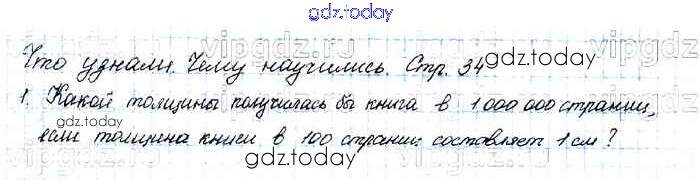 gdz.today
Что узнали. Чему научились. Стр. 34
gdz.today
1. Какой толщины получилась бы книга в 1 000 000 страниц,
gdz.today
если толщина книги в 100 страниц составляет 1 см?
gdz.today